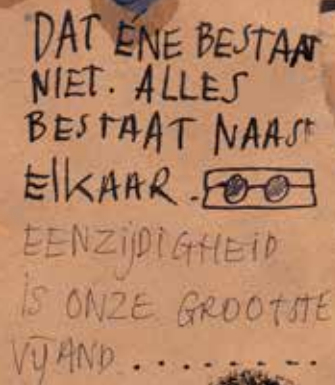 DAT ÉNE BESTAAT
NIET. ALLES
BESTAAT NAAST
ElKAAR.
EENZIJDIGHEID
IS ONZE GROOTSTE
VIJAND ........